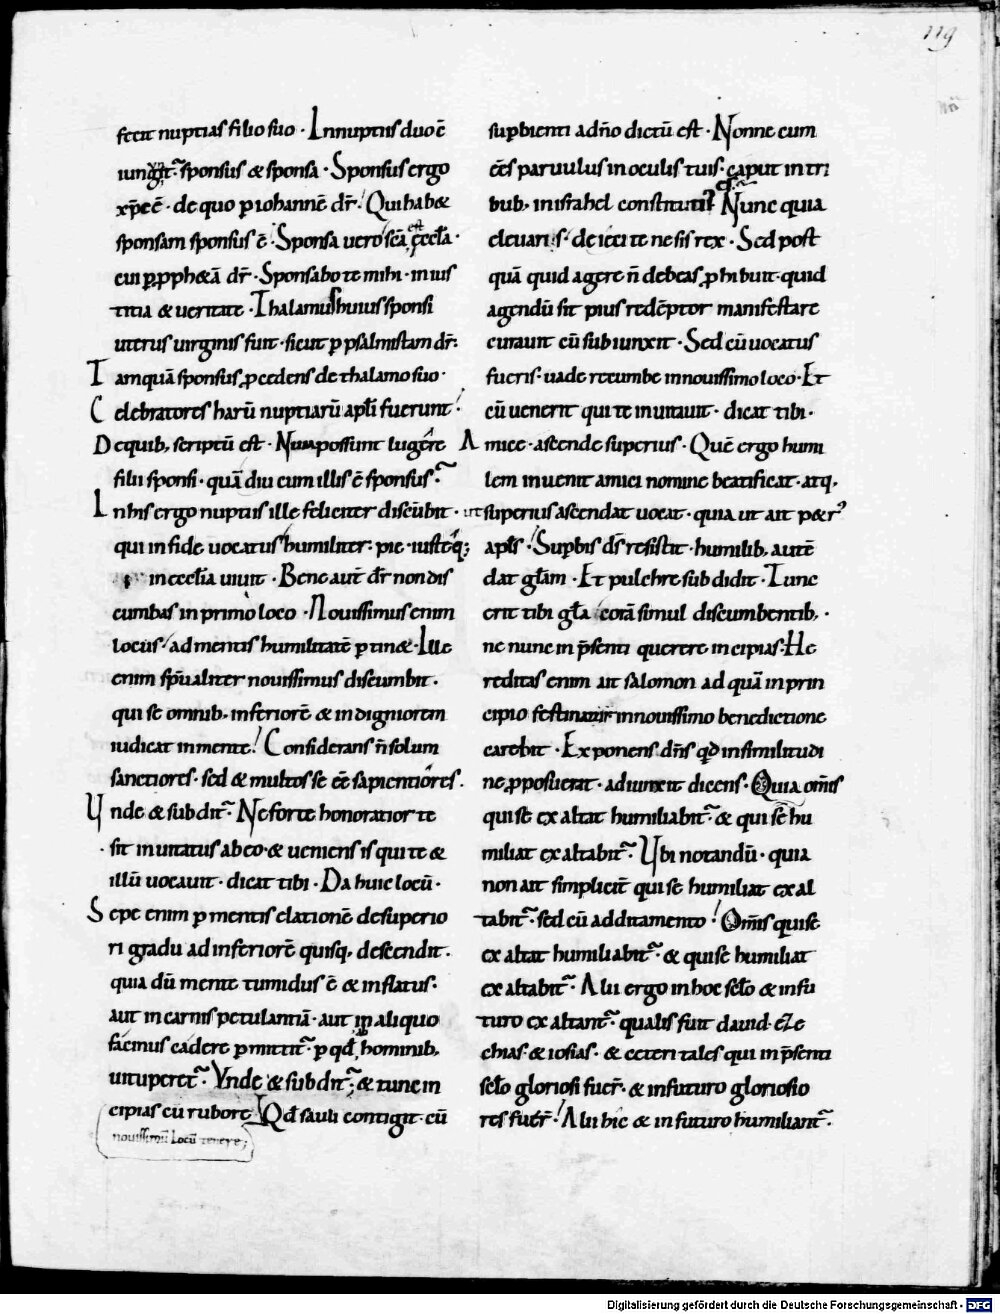 119
fecit nuptias filio suo · In nuptiis duo ē
iungit᷑ · sponsus & sponsa · Sponsus ergo
xp̄c ē · de quo p iohannē dr̄ · Qui hab&
sponsam sponsus ē · Sponsa vero sc̄a est ęccl̄a ·
cui p pph&ā dr̄ · Sponsabo te mihi · in ius
titia & veritate · Thalamus huius sponsi
uterus uirginis fuit · sicut p psalmistam dr̄ ·
Tamquā sponsus pcedens de thalamo suo ·
Celebratores harū nuptiarū apl̄i fuerunt ·
De quib; scriptū est · Num possunt lugere
filii sponsi · quā diu cum illis ē sponsus ·
In his ergo nuptiis ille feliciter discūbit ·
qui in fide uocatus humiliter · pie · iusteq;
in eccl̄ia uiuit · Bene aut̄ dr̄ non dis
cumbas in primo loco · Nouissimus enim
locus · ad mentis humilitatē ptin& · Ille
enim sp̄ualiter nouissimus discumbit ·
qui se omnib; inferiorē & indigniorem
iudicat in mente · Considerans n̄ solum
sanctiores · sed & multos se ēē sapientiores ·
Unde & subdit᷑ · Ne forte honoratior te
sit inuitatus ab eo · & ueniens is qui te &
illū uocauit · dicat tibi · Da huic locū ·
Sepe enim p mentis elationē de superio
ri gradu ad inferiorē quisq; descendit ·
quia dū mente tumidus ē & inflatus ·
aut in carnis petulantiā · aut in aliquo
facinus cadere pmittit᷑ · p qđ hominib;
uituperet᷑ · Vnde & subdit᷑ · & tunc in
cipias cū rubore Qđ sauli contigit · cū
nouissimū locū tenere;
supbienti a dn̄o dictū est · Nonne cum
ēēs paruulus in oculis tuis · caput in tri
bub; in israhel constitutus es · Nunc quia
eleuaris · deiecit te ne sis rex · Sed post
quā quid agere n̄ debeas phibuit · quid
agendū sit pius redēptor manifestare
curauit cū subiunxit · Sed cū uocatus
fueris · uade recumbe in nouissimo loco · Et
cū uenerit qui te inuitauit · dicat tibi ·
Amice · ascende superius · Quē ergo humi
lem inuenit amici nomine beatificat · atq;
ut superius ascendat uocat · quia ut ait p&r᷒
apl̄s · Supbis dr̄ resistit · humilib; autē
dat gl̄am · Et pulchre subdidit · Tunc
erit tibi gl̄a corā simul discumbentib; ·
ne nunc in p̄senti querere incipias · He
reditas enim ait salomon ad quā in prin
cipio festinatur in nouissimo benedictione
carebit · Exponens dn̄s qđ in similitudi
ne pposuerat · adiunxit dicens · Quia om̄is
qui se exaltat humiliabit᷑ · & qui se hu
miliat exaltabit᷑ · Ubi notandū · quia
non ait simplicit̄ qui se humiliat exal
tabit᷑ · sed cū additamento · Om̄is qui se
exaltat humiliabit᷑ · & qui se humiliat
exaltabit᷑ · Alii ergo in hoc sc̄lo & in fu
turo exaltant᷑ · qualis fuit dauid · eze
chias · & iosias · & ceteri tales qui in p̄senti
sc̄lo gloriosi fuer̄ · & in futuro gloriosio
res fuer̄ · Alii hic & in futuro humiliant᷑ ·
Digitalisierung gefördert durch die Deutsche Forschungsgemeinschaft - DFG